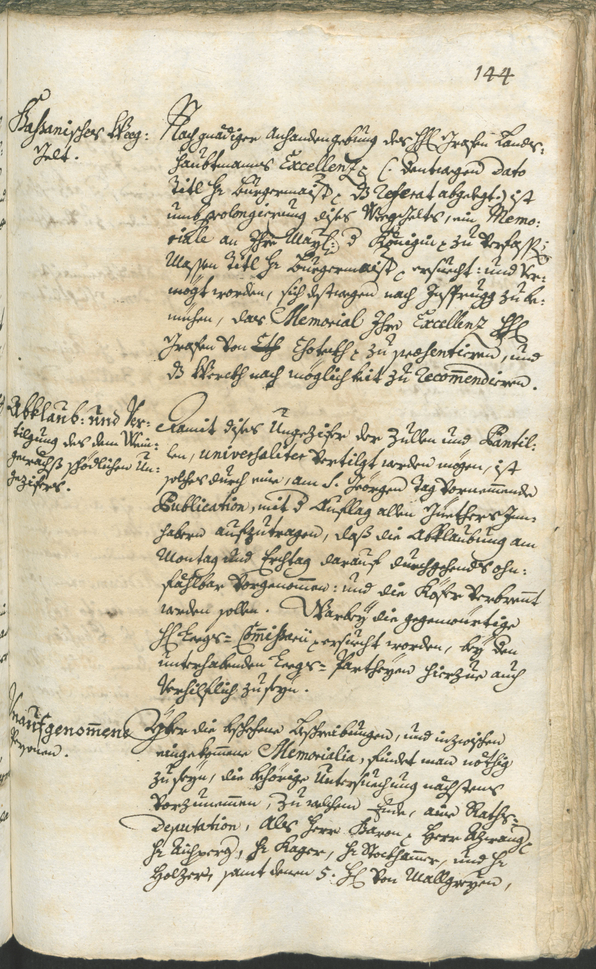 144
Baßanisches Weg-
Gelt.
Nach gnädiger Anhandengebung des H: Grafen Lands-
haubtmanns Excellenz (: dentwegen dato
Titl H: Burgermaister das Referat abgelegt :) ist
umb prolongierung dises Weeggelts, ein Memo-
riale an Ihro Mayl: d Königin zu verfass
Massen Titl H: Burgermaister ersucht: und ver-
mögt worden, sich destwegen nach Insprugg zu be-
müehen, daes Memorial Ihro Excellenz H:
Grafen von Chotekh zu præsentieren, und
ds Werckh nach möglichkeit zu recomendieren.
Abklaub: und Ver-
tilgung des dem Wein-
gewächß schödlichen Un-
gezifers.
Damit dises Ungezifer der Zullen und Pantil-
len, universaliter vertilgt werden mögen, ist
solches durch eine, am S: Geörgen Tag vornemmende
Publication, mit d Auflag allen Güethers Inn-
habern aufzutragen, daß die Abklaubung am
Montag und Erchtag darauf durchgehends ohn-
fählbar vorgenommen: und die Köfer verbrennt
werden sollen. Warbey die gegenwürtige
H: Leegs- Comissarii ersucht worden, bey den
unterhabenden Leegs- Partheyen hierzue auch
verhilflich zu seyn.
Unaufgenomene
Persohnen.
Yber die beschehene Beschreibungen, und inzwischen
eingekommene Memorialia, findet man nöthig
zu seyn, die behörige Untersuechung nächstens
vorzunemmen, zu welchem Ende, eine Raths-
Deputation, als Herr Baron, Herr
H: Aichperg, H: Kager, H: Stockhamer, und H:
Holzer, samt denen 5. H: von Mallgreyen,